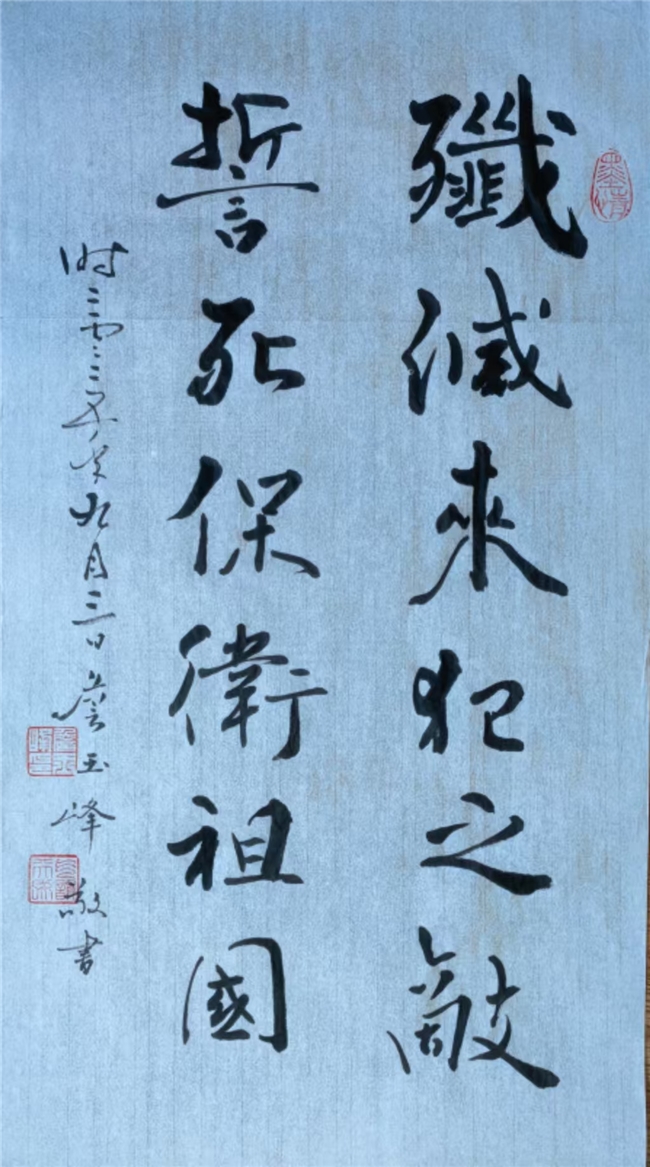 殲滅來犯之敵
誓死保衛祖國
时二零二年九月三日詹玉峰敬書